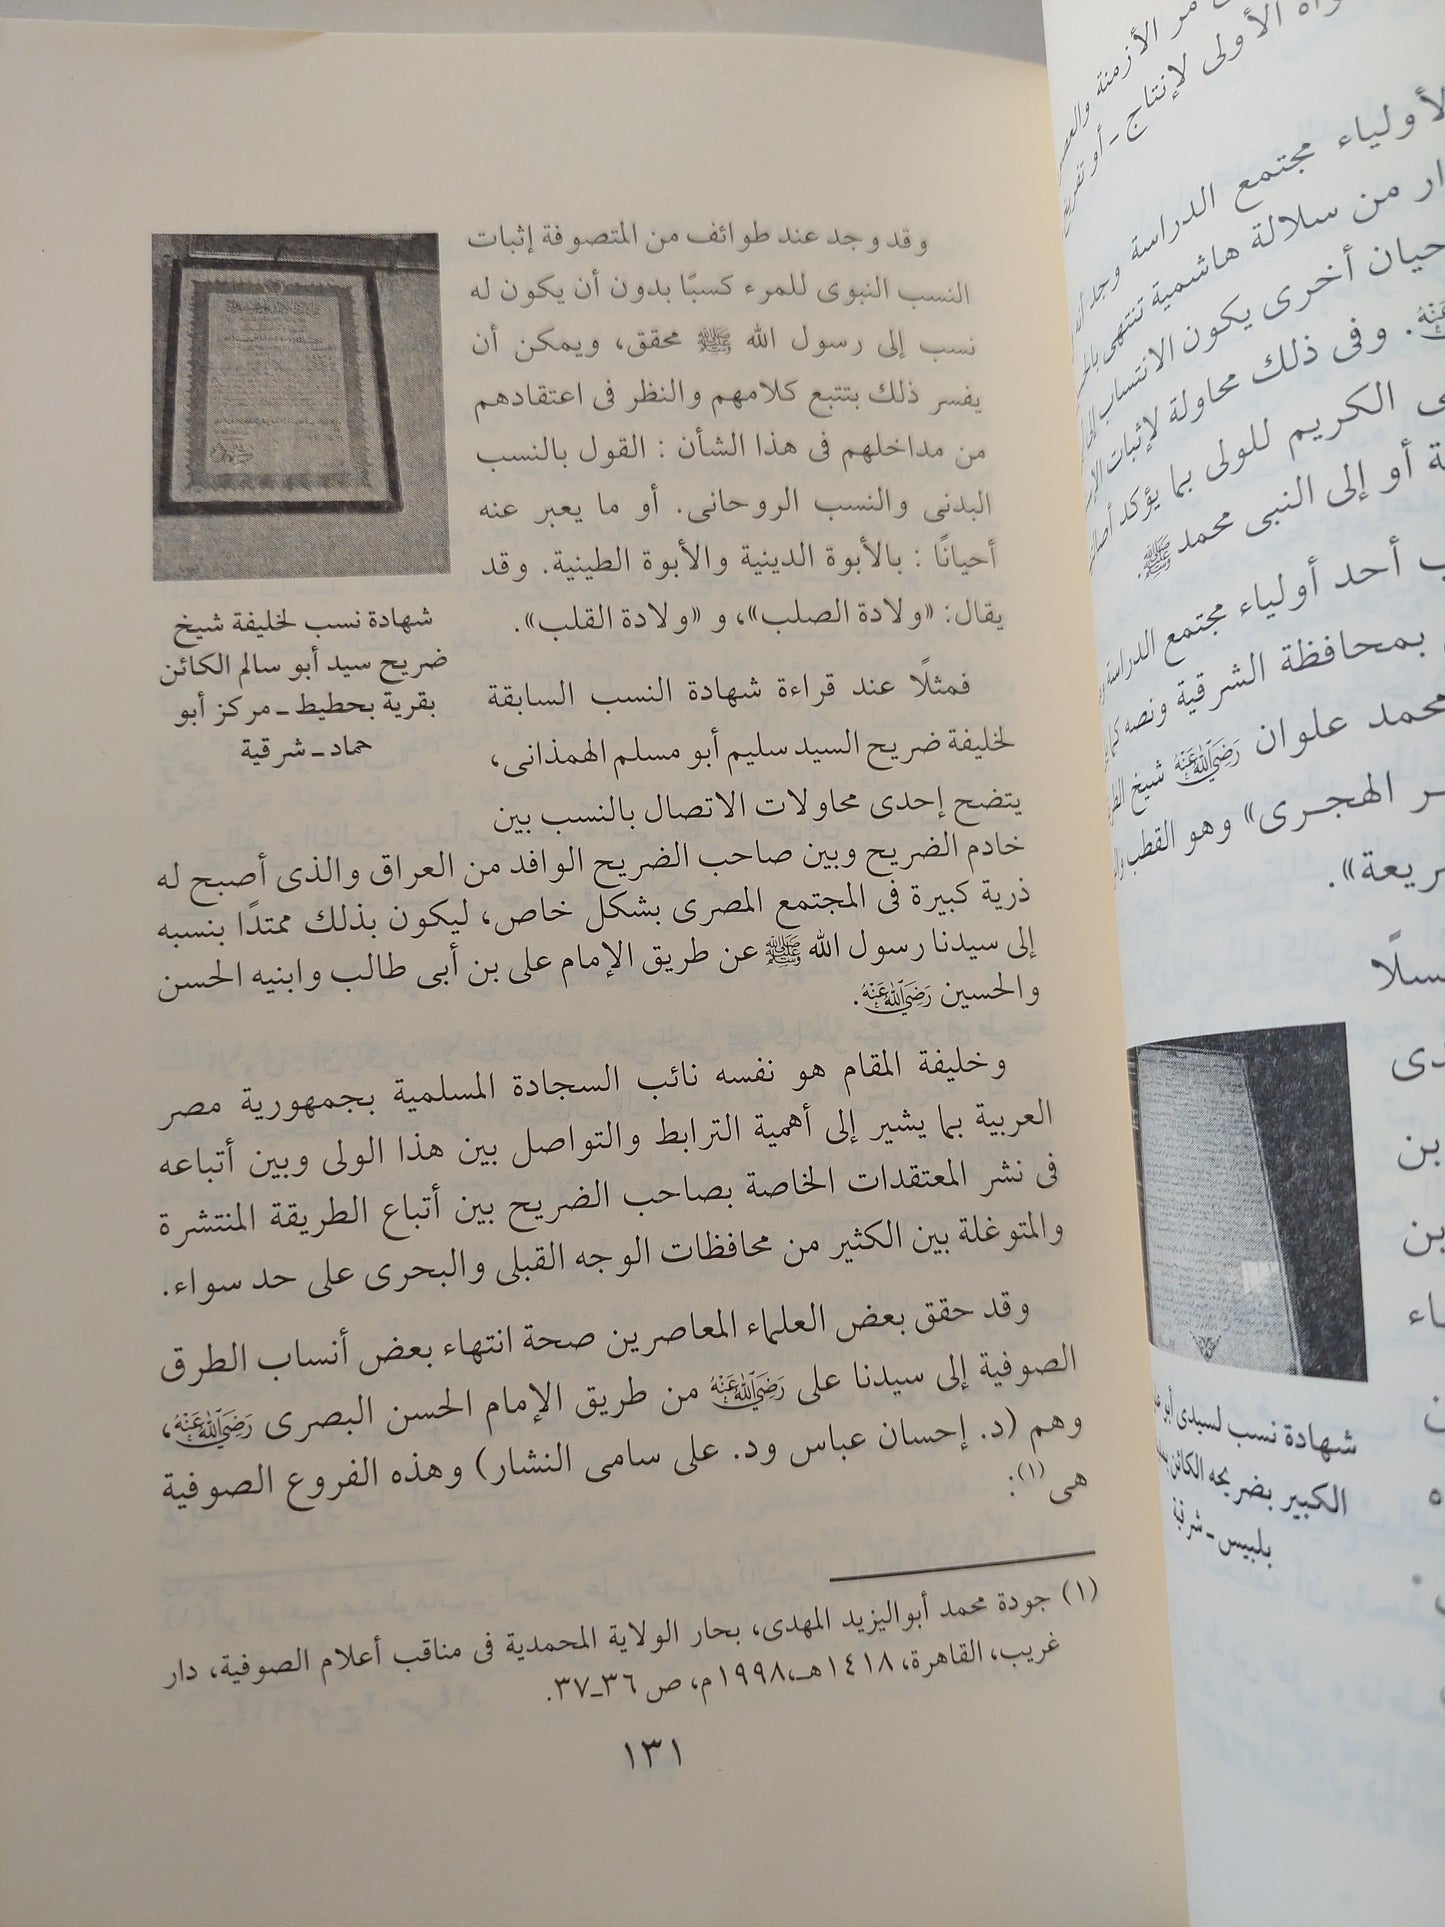 وقد وجد عند طوائف من المتصوفة إثبات
النسب النبوى للمرء كسبًا بدون أن يكون له
نسب إلى رسول الله ﷺ محقق، ويمكن أن
يفسر ذلك بتتبع كلامهم والنظر فى اعتقادهم
من مداخلهم فى هذا الشأن : القول بالنسب
البدنى والنسب الروحانى. أو ما يعبر عنه
أحيانًا : بالأبوة الدينية والأبوة الطينية. وقد
يقال: «ولادة الصلب»، و «ولادة القلب».
شهادة نسب لخليفة شيخ
ضريح سيد أبو سالم الكائن
بقرية بحطيط ـ مركز أبو
حماد ـ شرقية
فمثلًا عند قراءة شهادة النسب السابقة
لخليفة ضريح السيد سليم أبو مسلم الهمذانى،
يتضح إحدى محاولات الاتصال بالنسب بين
خادم الضريح وبين صاحب الضريح الوافد من العراق والذى أصبح له
ذرية كبيرة فى المجتمع المصرى بشكل خاص، ليكون بذلك ممتدًا بنسبه
إلى سيدنا رسول الله ﷺ عن طريق الإمام على بن أبى طالب وابنيه الحسن
والحسين رَضِيَ اللَّهُ عَنْهُ.
وخليفة المقام هو نفسه نائب السجادة المسلمية بجمهورية مصر
العربية بما يشير إلى أهمية الترابط والتواصل بين هذا الولى وبين أتباعه
فى نشر المعتقدات الخاصة بصاحب الضريح بين أتباع الطريقة المنتشرة
والمتوغلة بين الكثير من محافظات الوجه القبلى والبحرى على حد سواء.
وقد حقق بعض العلماء المعاصرين صحة انتهاء بعض أنساب الطرق
الصوفية إلى سيدنا على رَضِيَ اللَّهُ عَنْهُ من طريق الإمام الحسن البصرى رَضِيَ اللَّهُ عَنْهُ،
وهم (د. إحسان عباس ود. على سامى النشار) وهذه الفروع الصوفية
هى (١):
(١) جودة محمد أبواليزيد المهدى، بحار الولاية المحمدية فى مناقب أعلام الصوفية، دار
غريب، القاهرة، ١٤١٨هـ، ١٩٩٨م، ص ٣٦ـ٣٧.
١٣١
مر الأزمنة
الأولى لإنتاج ـ أو
لأولياء مجتمع الدراسة وجد
من سلالة هاشمية تنتهى
أخرى يكون الانتساب
وفى ذلك محاولة لإثبات
الكريم للولى بما يؤكد
أو إلى النبى محمد ﷺ.
أحد أولياء مجتمع الدراسة
بمحافظة الشرقية ونصه
محمد علوان رَضِيَ اللَّهُ عَنْهُ شيخ
الهجرى» وهو القطب
بن
بن
شهادة نسب لسيدى أبو
الكبير بضريحه الكائن
بلبيس ـ شرقية